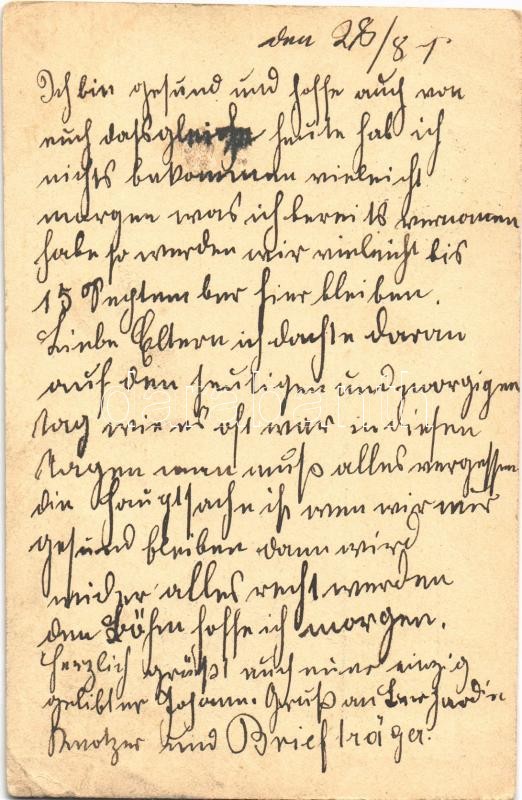 den 28/8 1
Ich bin gesund und hoffe auch von
euch dassgleiche heute hab ich
nichts bekommen vieleicht
morgen was ich bereits vernomen
habe so werden wir vieleicht bis
15 September hier bleiben.
Liebe Eltern ich dachte daran
auf den heutigen und morgigen
tag wie es oft war in diesen
tagen man muß alles vergessen
die Hauptsache ist wen wir nur
gesund bleiben dann wird
wider alles recht werden
den Böhm hoffe ich morgen.
Herzlich grüßt euch euer einzig
gelibter Johann. Gruß an
und Briefträger.
darabanth